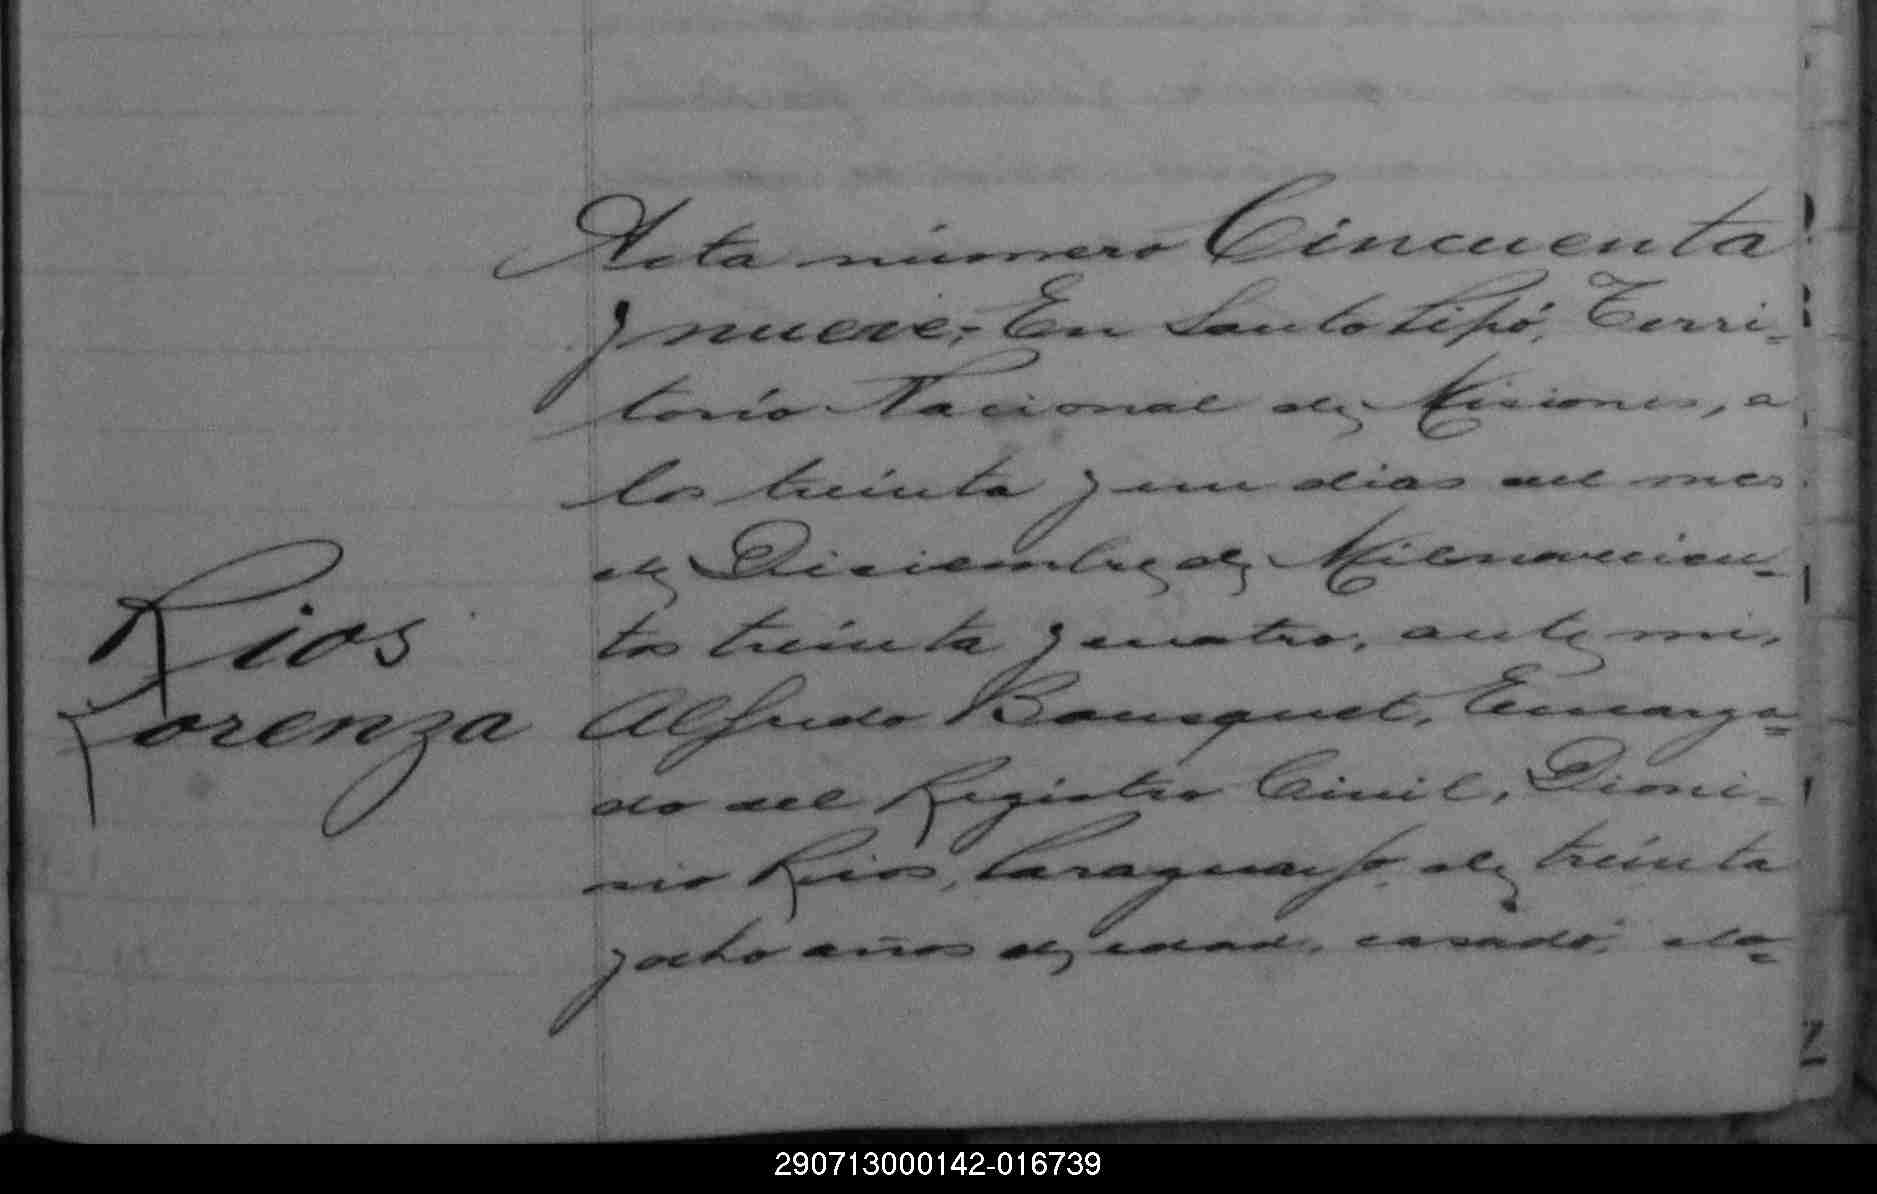 Acta número Cincuenta
y nueve.- En Santo Pipó, Terri-
torio Nacional de Misiones, a
los treinta y un dias del mes
de Diciembre de Mil novecien-
tos treinta y cuatro, ante mi,
Rios
Lorenza
Alfredo Bousquet, Encarga-
do del Registro Civil, Dioni-
sio Rios, Paraguayo de treinta
y ocho años de edad, casado,
290713000142-016739